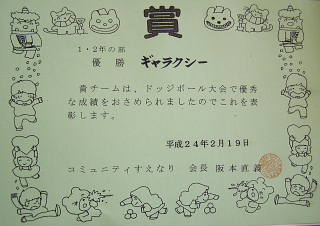 賞
1・2年の部
優勝 ギャラクシー
貴チームは、ドッジボール大会で優秀
な成績をおさめられましたのでこれを表
彰します。
平成24年2月19日
コミュニティすえなり 会長 阪本直義